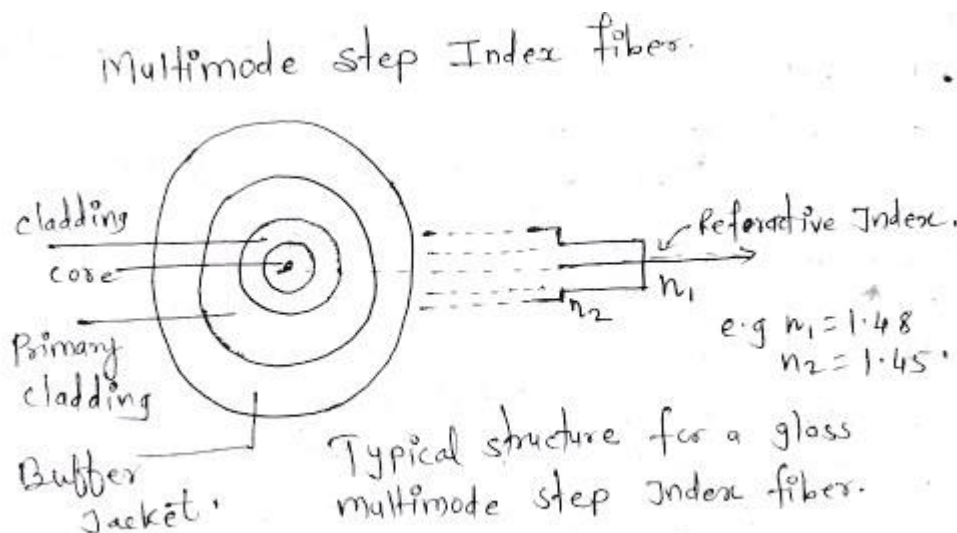 Multimode step Index fiber.
cladding
core
Primary
cladding
Buffer
Jacket.
Reforactive Index.
n2
n1
e.g n1 = 1.48
n2 = 1.45.
Typical structure for a glass
multimode step Index fiber.